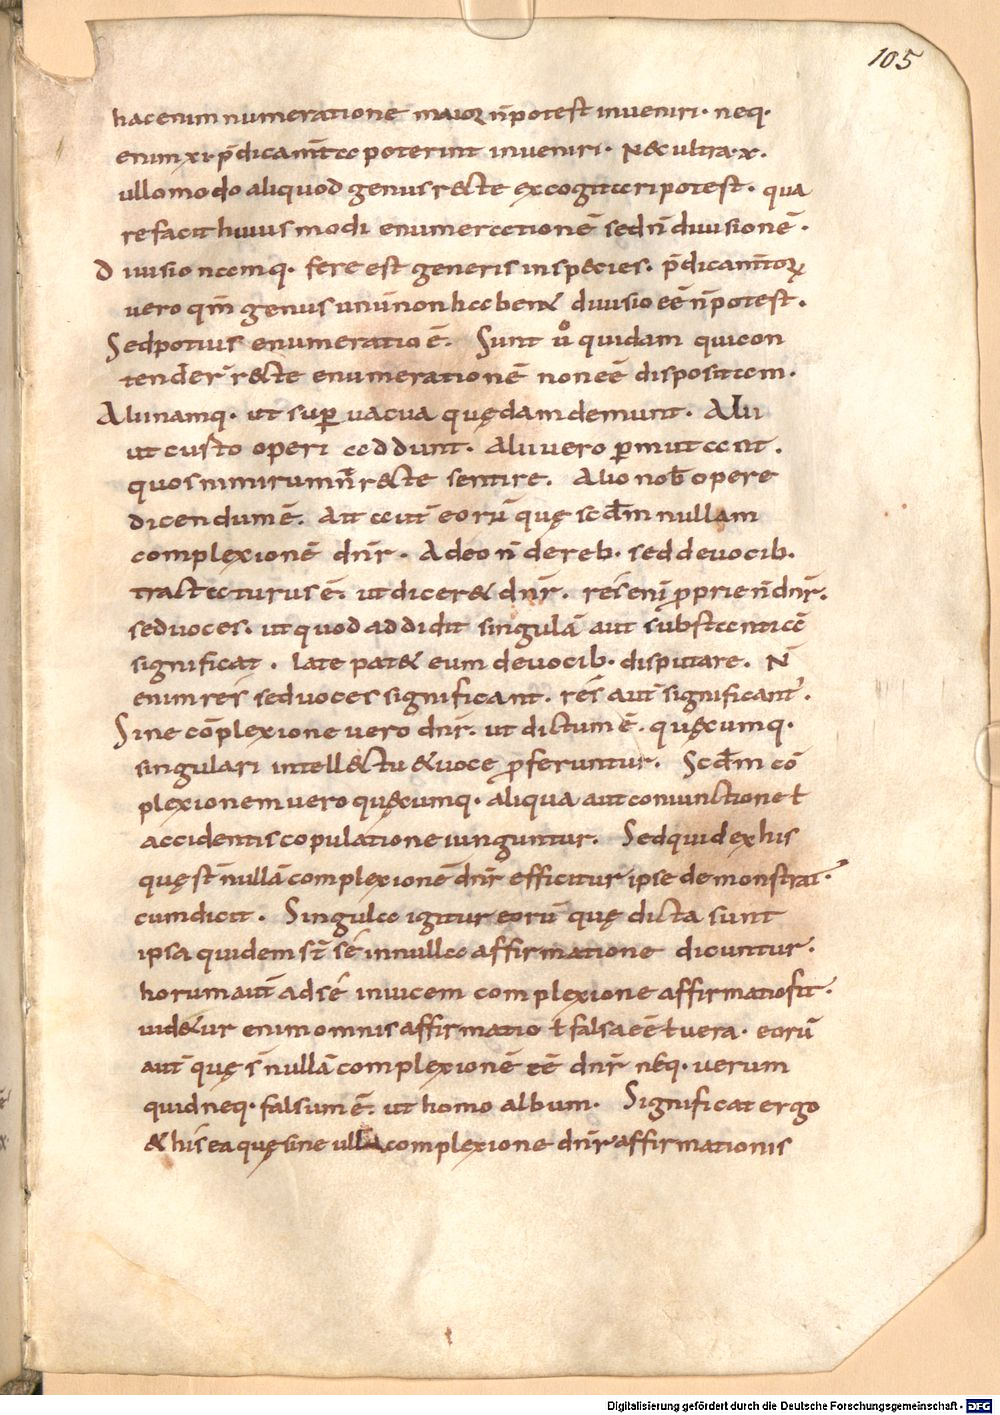 105
hac enim numeratione maior n̄ potest inveniri · neq·
enim xi· p̄dicam̄ta poterint inveniri · N& ultra · x ·
ullo modo aliquod genus r&cte excogitari potest · qua
re facit huius modi enumerationē sed n̄ divisionē ·
Divisio namq· fere est generis in species · p̄dicam̄toꝝ
vero qm̄ genus unū non haben̄t divisio eē n̄ potest ·
Sed potius enumeratio ē. Sunt uͦ quidam qui con
tender̄ r&cte enumerationē non eē dispositam ·
Alii namq· ut suꝑ vacua quędam demunt · Alii
ut custo operi addunt · Alii vero ꝑmutant ·
quos nimirum n̄ r&cte sentire · Alio nob̄ opere
dicendum ē. Ait aut̄ eorū quę scd̄m nullam
complexionē dn̄r · Adeo n̄ de reb· sed de vocib·
tractaturus ē. ut dicer& dn̄r. res eni ꝓprie n̄ dn̄r.
sed voces. ut quod addidit singulā aut substantiā
significat. late pat& eum de vocib· disputare. N̄
enim res sed voces significant. res aut̄ significant̄.
Sine cōplexione vero dn̄r. ut dictum ē. quęcumq·
singulari intell&ctu & voce ꝓferuntur. Scd̄m cō
plexionem vero quęcumq· aliqua aut coniunctione ł
accidentis copulatione iunguntur. Sed quid ex his
quę st̄ nullā complexionē dn̄r efficitur ipse demonstrat ·
cum dicit. Singula igitur eorū quę dicta sunt
ipsa quidem st̄ sé in nulla affirmatione dicuntur.
horum aut̄ ad sé invicem complexione affirmatio fit ·
vid&ur enim omnis affirmatio ł falsa eē ł vera · eorū
aut̄ quę s̄ nullā complexionē dn̄r neq· verum
quid neq· falsum ē. ut homo album · Significat ergo
& his ea quę sine ulla complexione dn̄r affirmationis
Digitalisierung gefördert durch die Deutsche Forschungsgemeinschaft - DFG